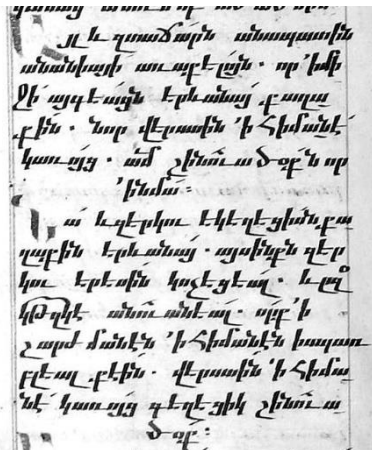 յլ և զտաճարն անապատին
անանիայի առաքելոյն · որ ՛ի մի
ջի այգեացն երևանայ քաղա
քին · նոր վերստին ՛ի հիմանէ
կառոյց · ամ շինուածօքն որ
՛ի նմա ։
ա և զերկու եկեղեցիսն քա
ղաքին երևանայ · այսինքն զեր
կու երեսին կոչեցեալ · և զ
կթղկէ անուանեալ · որք ՛ի
շարժմանէն ՛ի հիմանէն խապառ
բլեալ էին · վերստին ՛ի հիմա
նէ կառոյց գեղեցիկ շինուա
ծօք ։